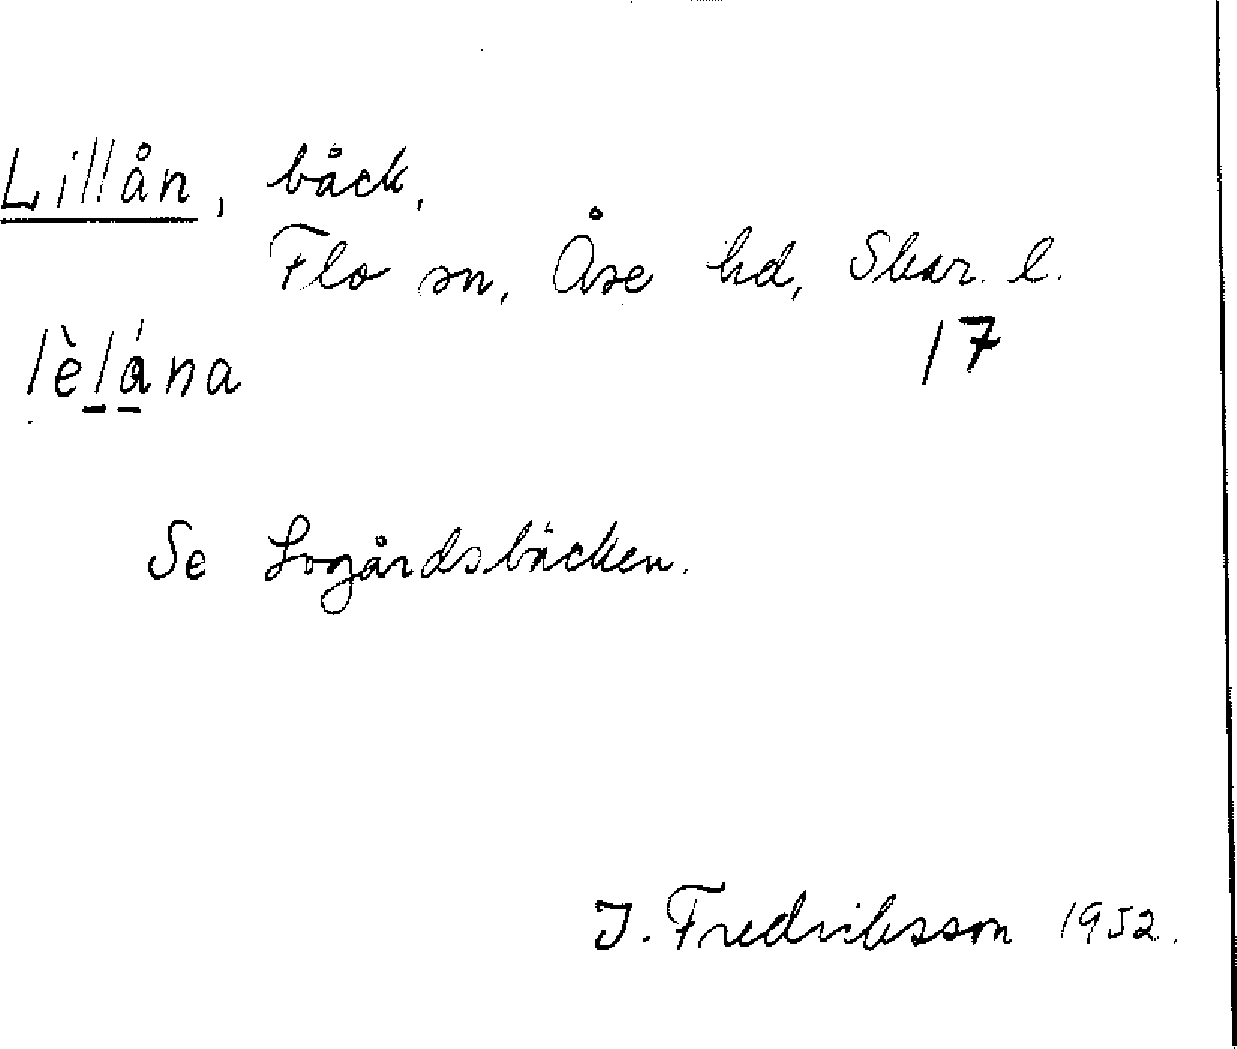 Lillån, bäck,
Flo sn, Åse hd, Skar. l.
lèlána 17
Se Logårdsbäcken.
J. Fredriksson 1952.